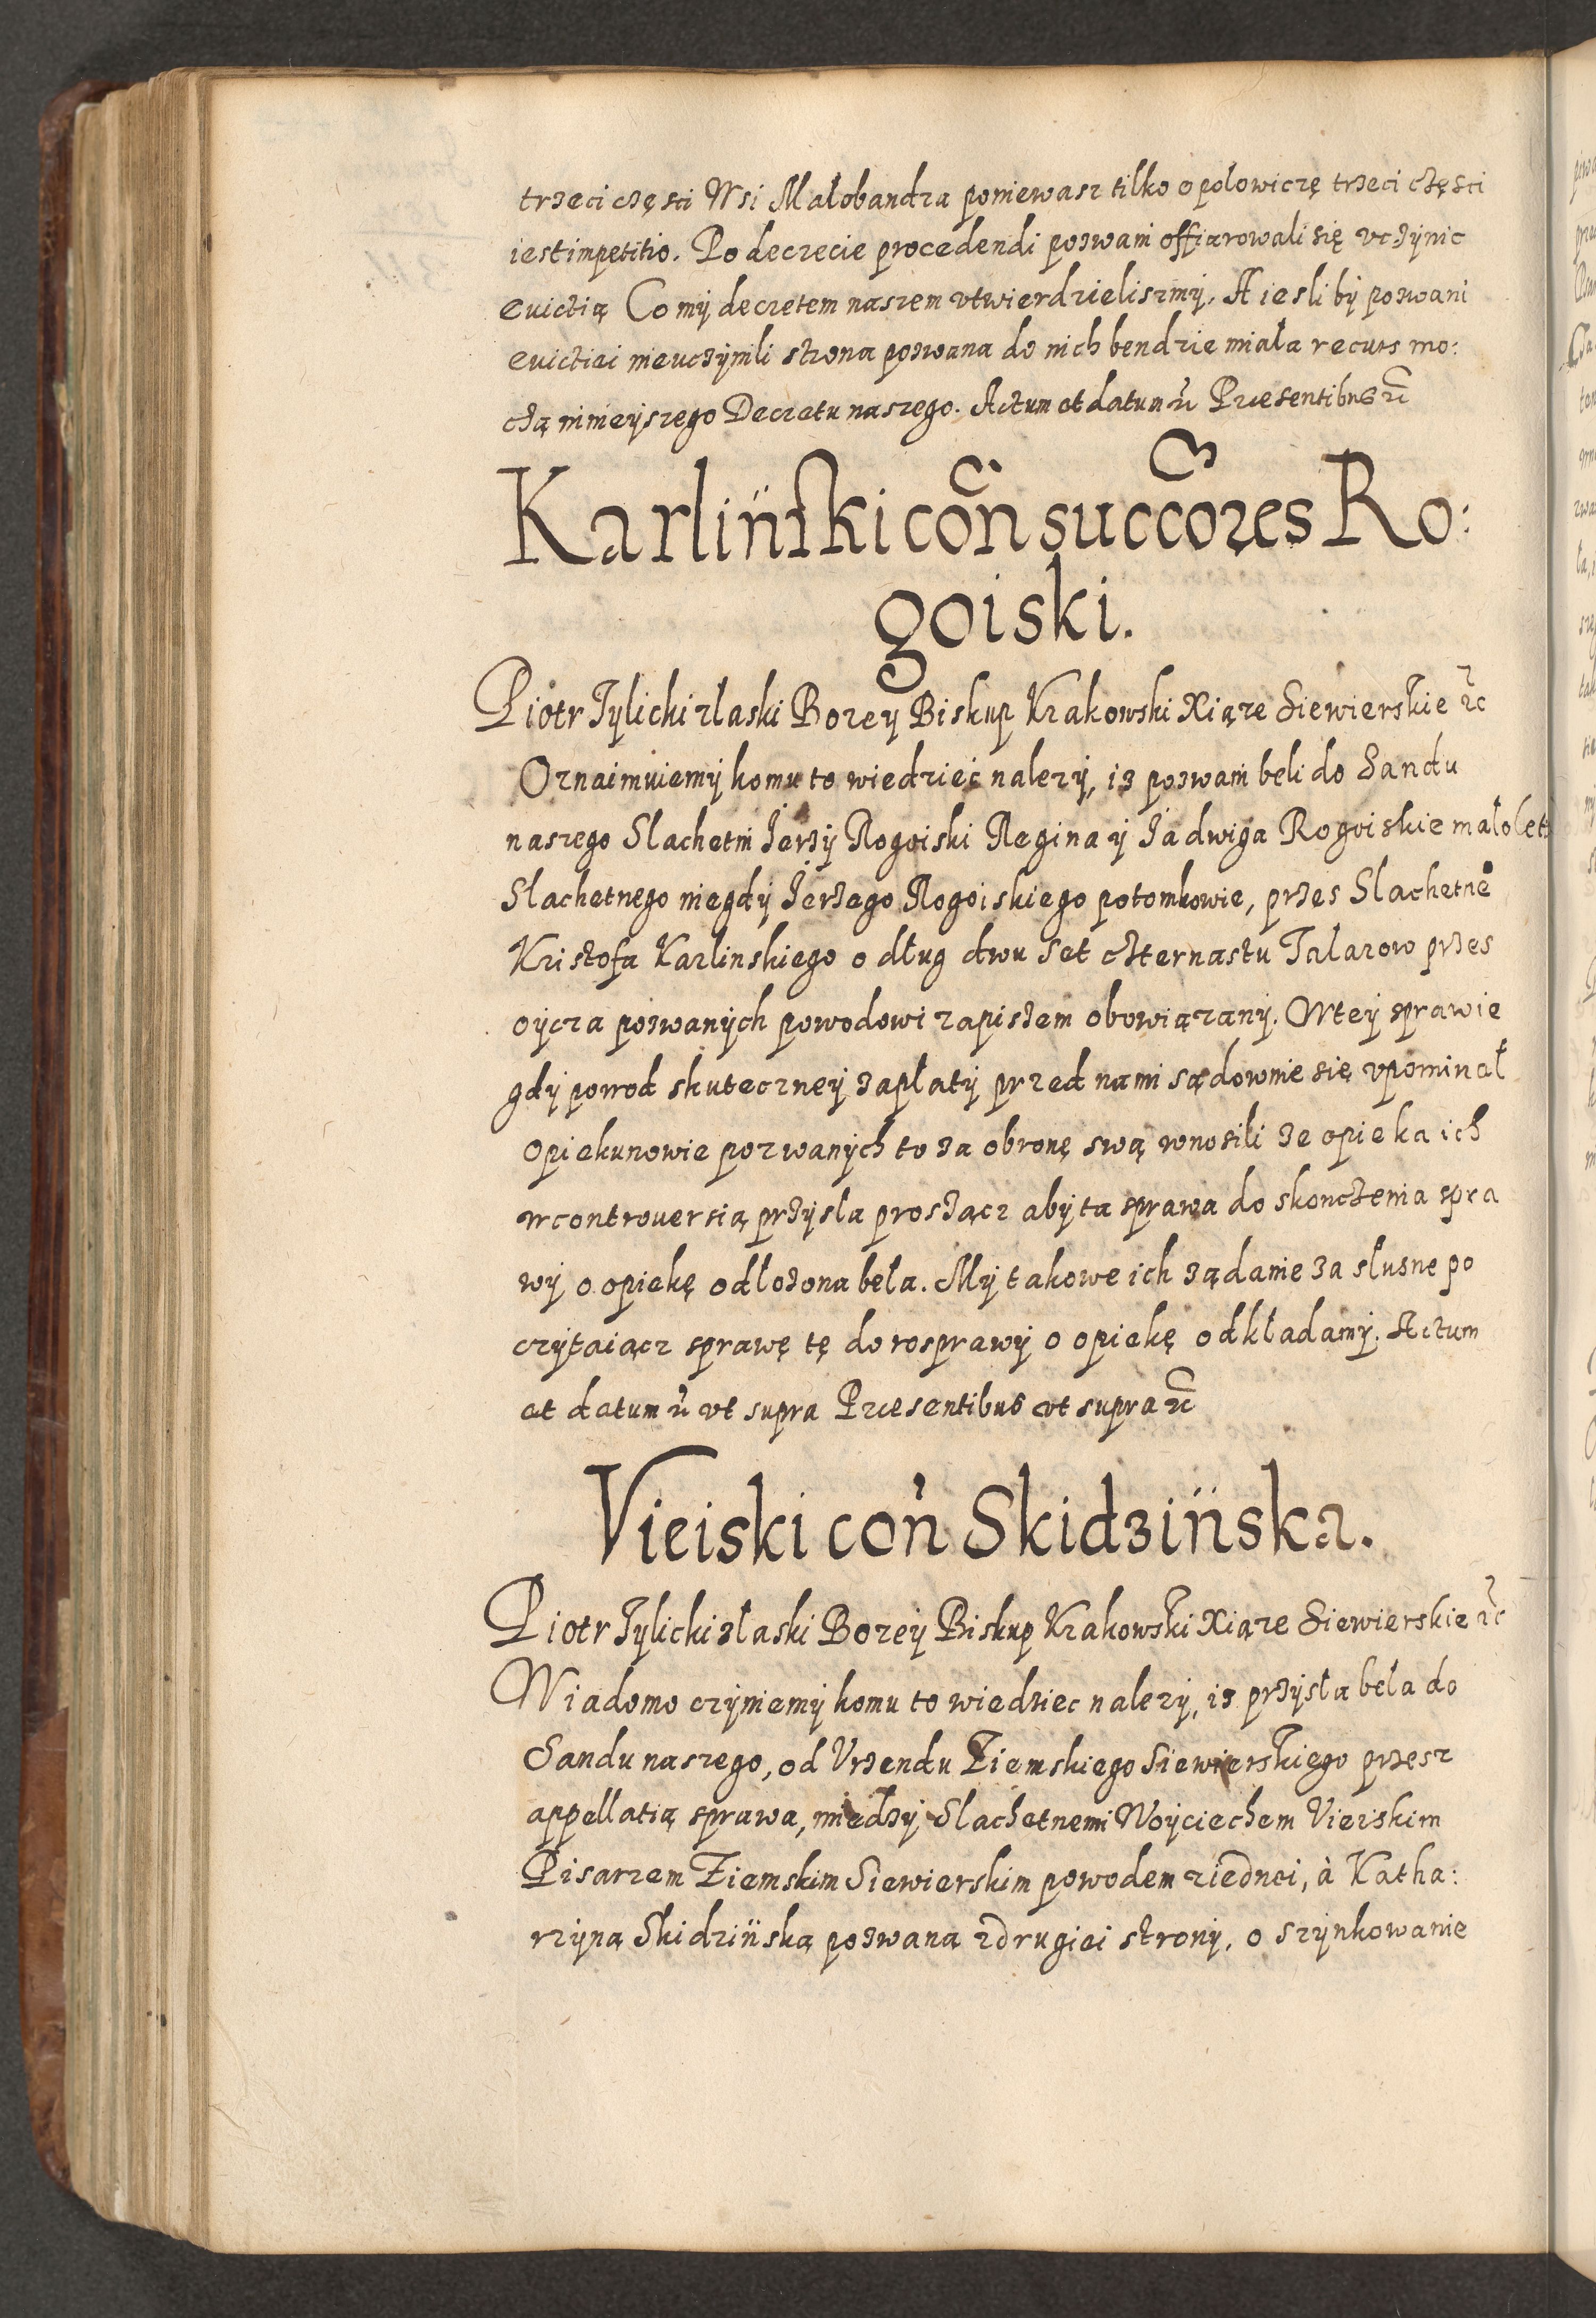 trzeci częsci Wsi Małobandza poniewasz tilko o połowiczę trzeci częsci
iest impetitio. Po decrecie procedendi pozwani offiarowali się vczÿnic
evictią Co mÿ decretem naszem vtwierdzieliszmÿ. A iesli bÿ pozwani
evictiei nieuczÿnili strona pozwana do nich bendzie miała recurs mo:
czą ninieÿszego Decretu naszego. Actum et datum ꝛc Præsentibus ꝛc
Karlińſki cõn succõres Ro:
goiski.
Piotr Tÿlicki zlaski Bozeÿ Biskup Krakowski Xiąze Siewierskie ꝛc
Oznaimuiemÿ komu to wiedzieć nalezÿ, iz pozwani beli do Sandu
naszego Slachetni Jerzÿ Rogoiski Regina ÿ Jadwiga Rogoiskie małolet:
Slachetnego niegdÿ Jerzego Rogoiskiego potomkowie, przes Slachetne
Kristofa Karlinskiego o dług dwu set czternastu Talarow przes
oÿcza pozwanÿch powodowi zapiszem obowiązanÿ. W teÿ sprawie
gdÿ powod skuteczneÿ zapłatÿ przed nami sądownie się vpominał
opiekunowie pozwanÿch to za obronę swą wnosili ze opieka ich
w controversią przÿsła prosząacz abÿ ta sprawa do skonczenia spra
wÿ o opiekę odłozona beła. Mÿ takowe ich ządanie za słusne po
czÿtaiącz sprawę tę do rosprawÿ o opiekę odkładamÿ. Actum
et datum ꝛc vt supra Præsentibus vt supra ꝛc
Vieiski coń Skidzińska.
Piotr Tÿlicki złaski Bozeÿ Biskup Krakowski Xiąze Siewierskie ꝛc
Wiadomo czÿniemÿ komu to wiedziec nalezÿ, iz przÿsła beła do
Sandu naszego, od Vrzendu Ziemskiego Siewierskiego przesz
appellatią sprawa, miedzÿ Slachetnemi Woÿciechem Vieiskim
Pisarzem Ziemskim Siewierskim powodem ziednei, à Katha:
rzÿną Skidzińską pozwaną zdrugiei stronÿ, o szÿnkowanie